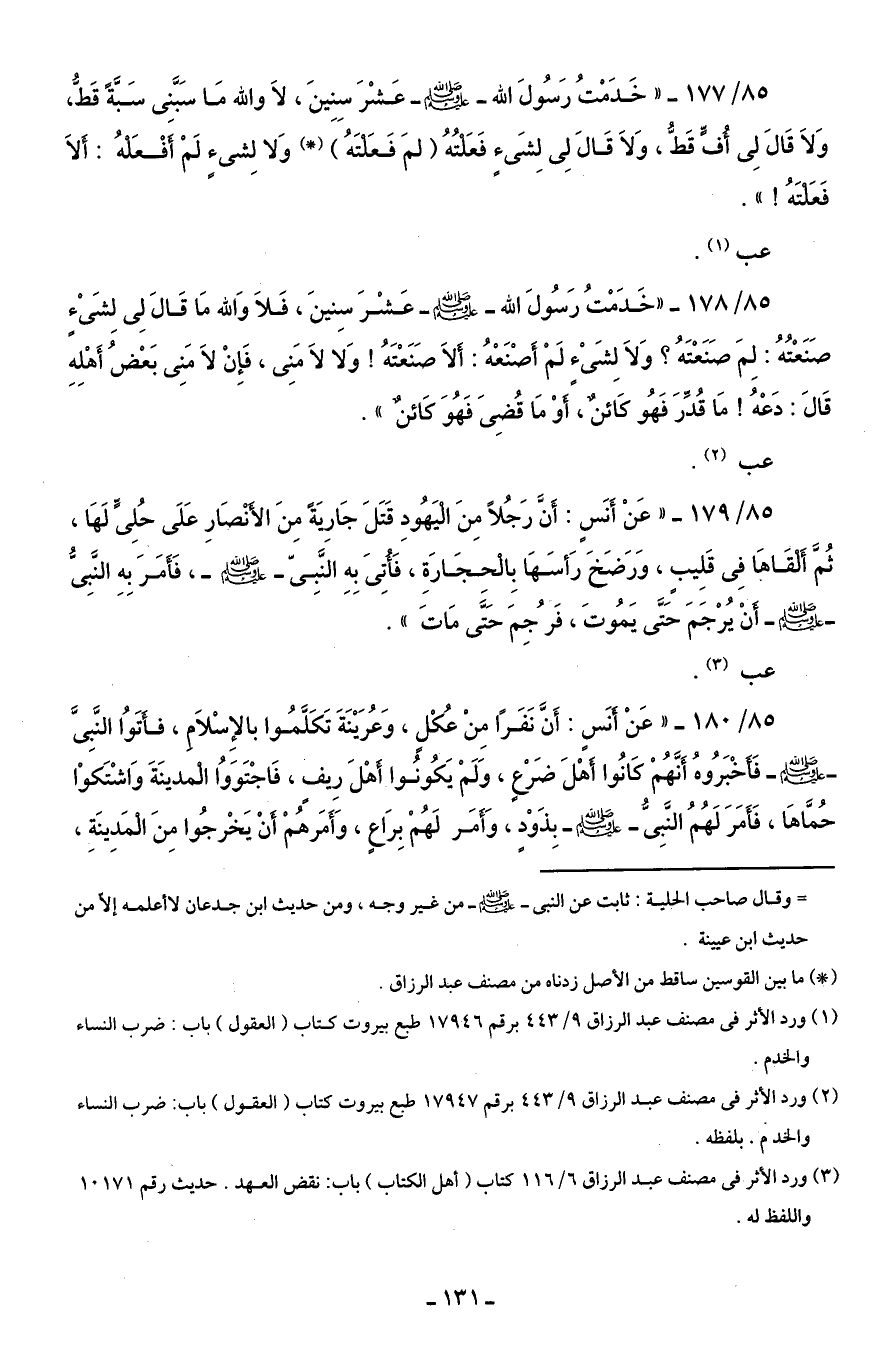 ١٧٧/٨٥ ـ « خَـدَمْتُ رَسُولَ الله ـ ﷺ ـ عَـشْرَ سِنِينَ ، لاَ والله مَـا سَبَّنِى سَـبَّةً قَطُّ،
وَلاَ قَالَ لِى أُفٍّ قَطُّ ، وَلاَ قَـالَ لِى لِشَىءٍ فَعَلْتُهُ ( لِمَ فَـعَلْتَهُ ) (*) وَلا لِشىءٍ لَمْ أَفْـعَلْهُ : أَلاَ
فَعَلْتَهُ ! » .
عب (١) .
١٧٨/٨٥ ـ «خَـدَمْتُ رَسُولَ الله ـ ﷺ ـ عَـشْـرَ سِنِينَ ، فَـلاَ وَالله مَا قَـالَ لِى لِشَىْءٍ
صَنَعْتُهُ : لِمَ صَنَعْتَهُ ؟ وَلاَ لِشَىْءٍ لَمْ أَصْنَعْهُ : أَلاَ صَنَعْتَهُ ! وَلا لاَ مَنِى ، فَإِنْ لاَ مَنِى بَعْضُ أَهْلِهِ
قَالَ : دَعْهُ ! مَا قُدِّرَ فَهُو كَائنٌ، أَوْ مَا قُضِىَ فَهُوَ كَائنٌ » .
عب (٢) .
١٧٩/٨٥ ـ « عَنْ أَنَسٍ : أَنَّ رَجُلاً مِنَ الْيَهُودِ قَتَلَ جَارِيَةً مِنَ الأَنْصَارِ عَلَى حُلِىٍّ لَهَا ،
ثُمَّ أَلْقَـاهَا فِى قَلِيبٍ ، وَرَضَخَ رَأسَـهَا بِالْحِـجَـارَةِ ، فَأُتِىَ بِهِ النَّبِـىّ ـ ﷺ ـ ، فَأَمَرَ بِهِ النَّبِىُّ
ـ ﷺ ـ أَنْ يُرْجَمَ حَتَّى يَمُوتَ ، فَرُجِمَ حَتَّى مَاتَ » .
عب (٣) .
١٨٠/٨٥ ـ « عَنْ أَنَسٍ : أَنَّ نَفَـرًا مِنْ عُكْلٍ ، وَعُرَيْنَةَ تَكَلَّمُـوا بالإِسْلاَمِ ، فـأَتَوُا النَّبِىَّ
ـ ﷺ ـ فَأَخْبَرُوهُ أَنَّهُمْ كَانُوا أَهْلَ ضَرْعٍ ، وَلَمْ يَكُونُـوا أَهْلَ رِيفٍ ، فَاجْتَوَوُا الْمدينَةَ وَاشْتَكَوْا
حُمَّاهَا ، فَأَمَرَ لَهُمُ النَّبِىُّ ـ ﷺ ـ بِذَوْدٍ ، وَأَمَـرَ لَهُمْ بِرَاعٍ ، وَأَمَرَهُمْ أَنْ يَخْرجُوا مِنَ الْمَدِينَةِ ،
= وقـال صاحب الحلية : ثابت عن النبى ـ ﷺ ـ من غير وجه ، ومن حديث ابن جـدعان لاأعلمـه إلاّ من
حديث ابن عيينة .
(*) ما بين القوسين ساقط من الأصل زدناه من مصنف عبد الرزاق .
(١) ورد الأثر فى مصنف عبد الرزاق ٤٤٣/٩ برقم ١٧٩٤٦ طبع بيروت كـتاب ( العقول ) باب : ضرب النساء
والخدم .
(٢) ورد الأثر فى مصنف عبـد الرزاق ٤٤٣/٩ برقم ١٧٩٤٧ طبع بيروت كتاب ( العقـول ) باب: ضرب النساء
والخدم . بلفظه .
(٣) ورد الأثر فى مصنف عبـد الرزاق ١١٦/٦ كتاب ( أهل الكتاب ) باب: نقض العـهد . حديث رقم ١٠١٧١
واللفظ له .
ـ ١٣١ ـ